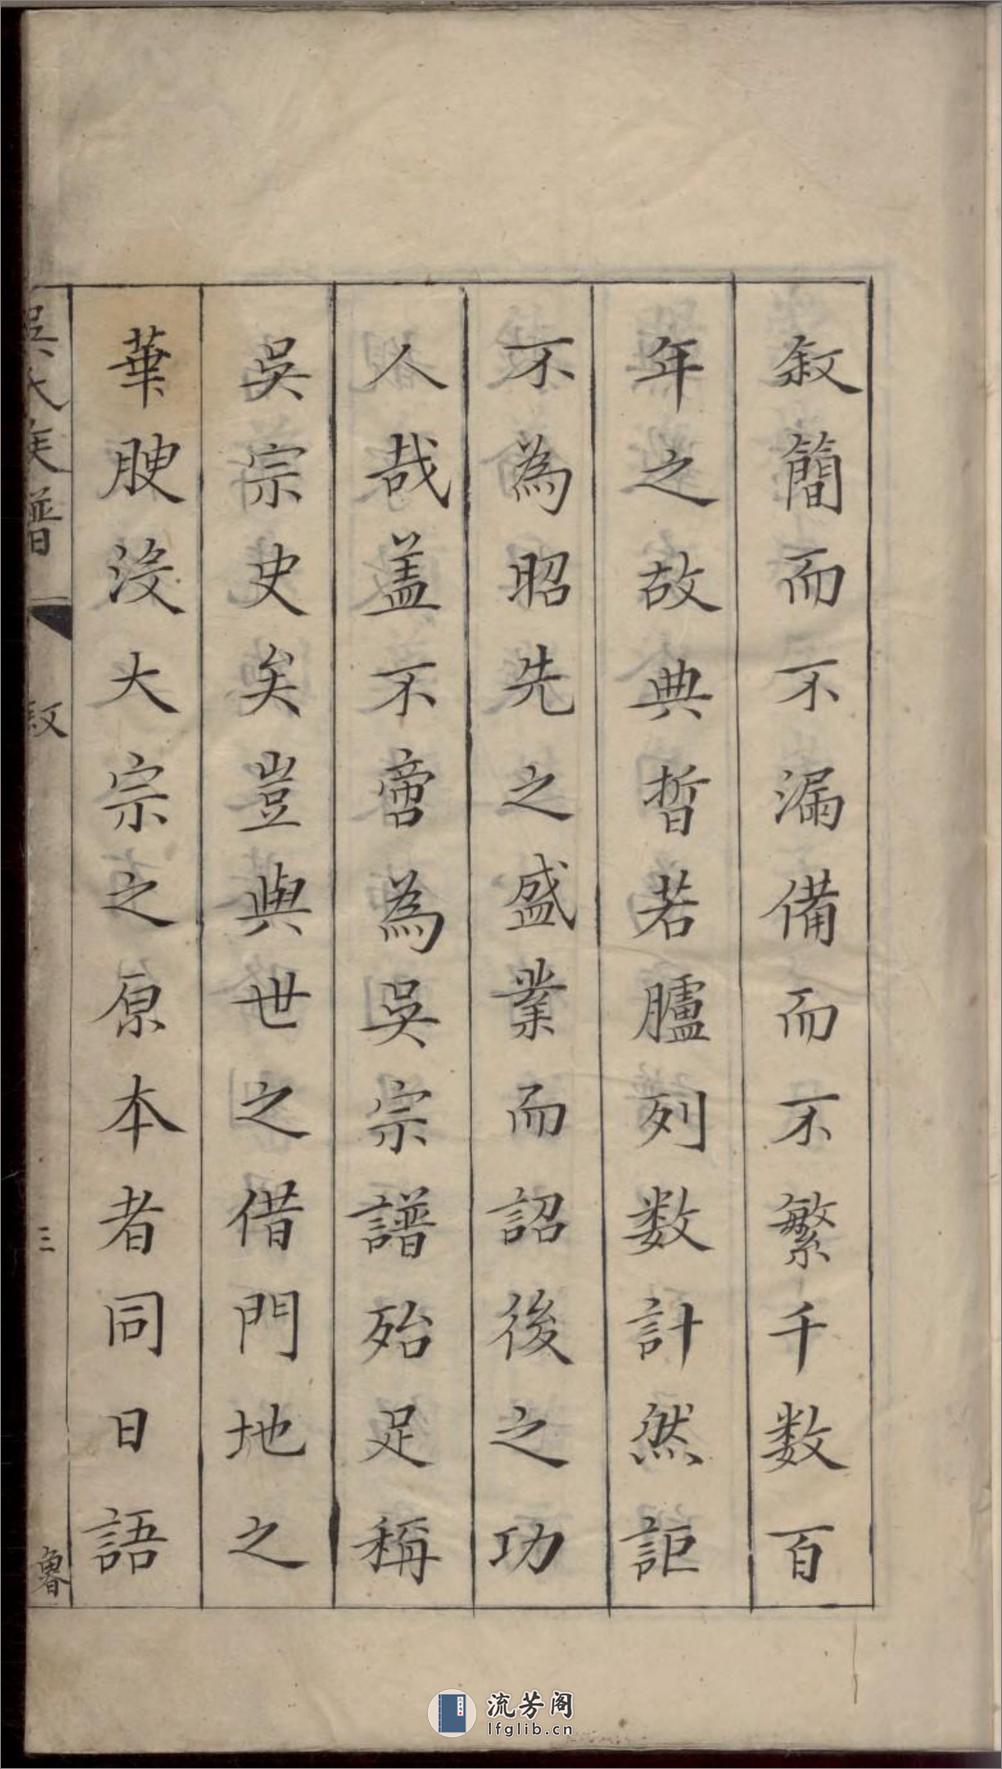 叙簡而不漏備而不繁千數百
年之故典晳若臚列数計然詎
不為昭先之盛業而詔後之功
人哉盖不啻為吳宗譜殆足稱
吳宗史矣豈與世之借門地之
華腴沒大宗之原本者同日語
吳氏族譜
叙
三
魯
流芳阁
lfglib.cn